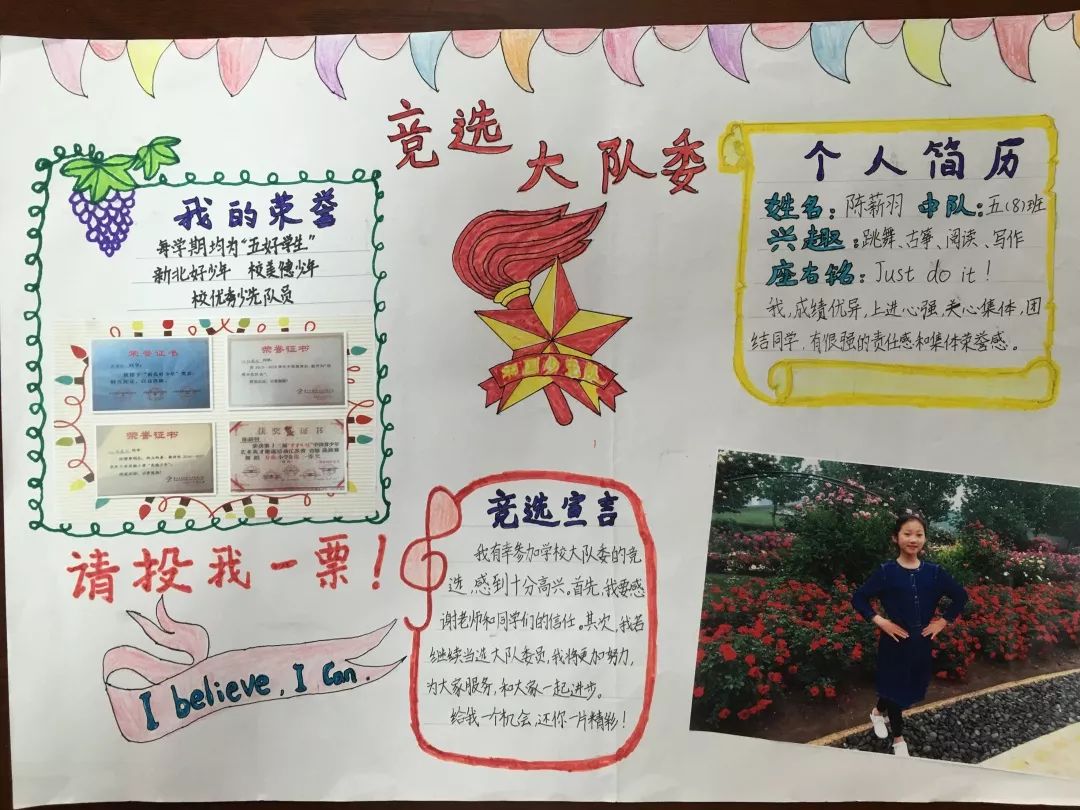 竞选
大队委
我的荣誉
每学期均为“五好学生”
新北好少年 校美德少年
校优秀少先队员
荣誉证书
荣誉证书
荣誉证书
获奖证书
请投我一票!
I believe, I Can.
中国少先队
竞选宣言
我有幸参加学校大队委的竞
选,感到十分高兴。首先,我要感
谢老师和同学们的信任。其次,我若
继续当选大队委员,我将更加努力,
为大家服务,和大家一起进步。
给我一个机会,还你一片精彩!
个人简历
姓名:陈薪羽 中队:五(8)班
兴趣:跳舞、古筝、阅读、写作
座右铭:Just do it!
我,成绩优异,上进心强,关心集体,团
结同学,有很强的责任感和集体荣誉感。